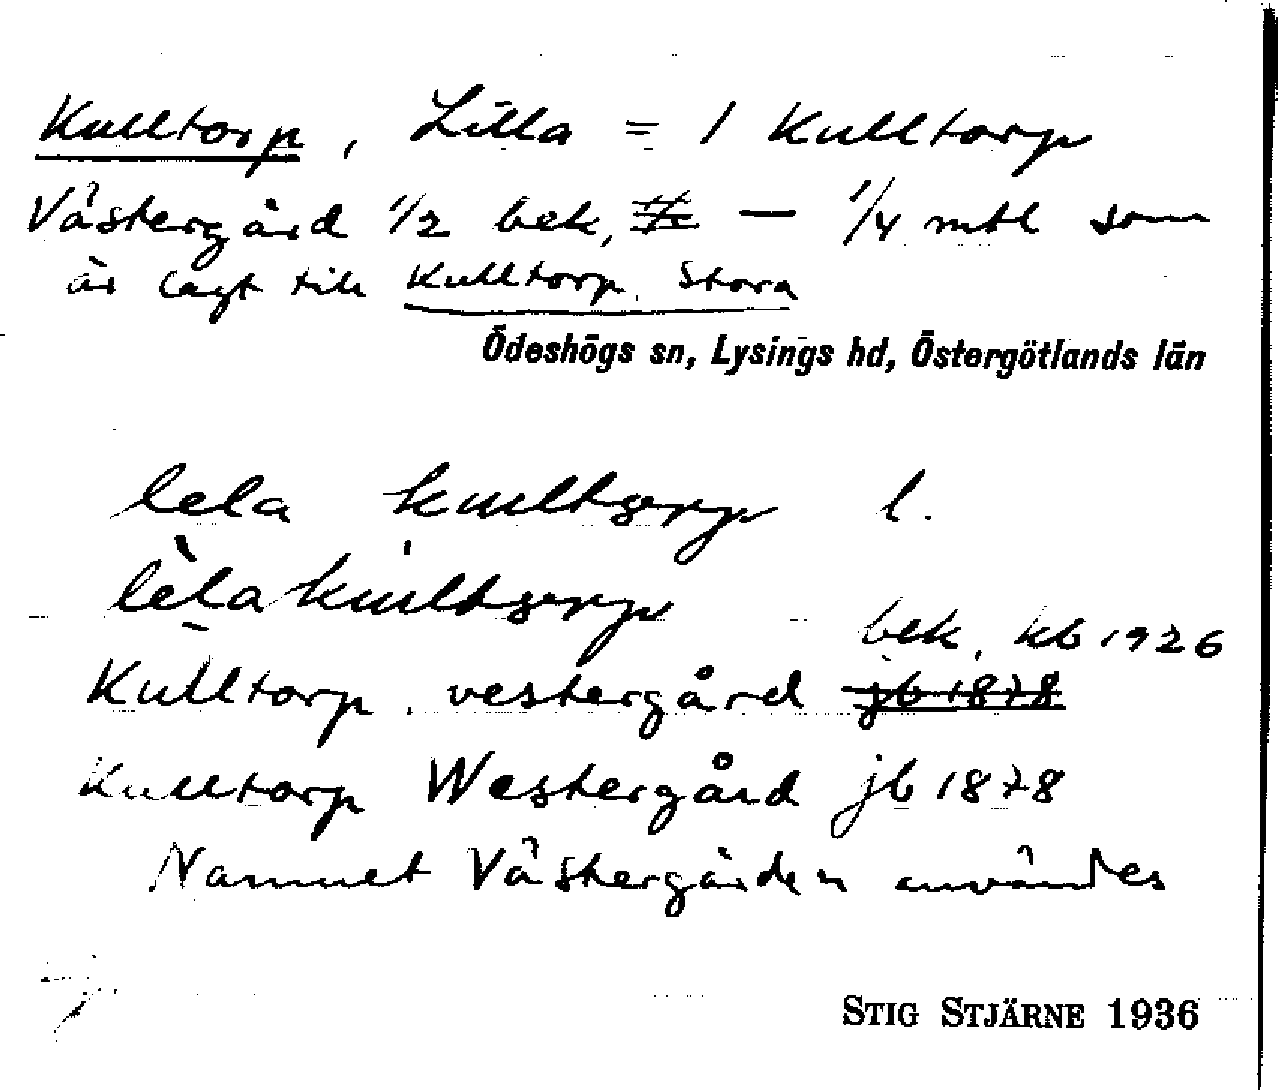 Kulltorp, Lilla = 1 Kulltorp
Västergård 1/2 bek, — 1/4 mtl som
är lagt till Kulltorp, Stora
Ödeshögs sn, Lysings hd, Östergötlands län
lela kulltorp l.
lelakulltorp
bek, kb 1926
Kulltorp, vestergård jb 1878
Kulltorp Westergård jb 1878
Namnet Västergården användes
STIG STJÄRNE 1936